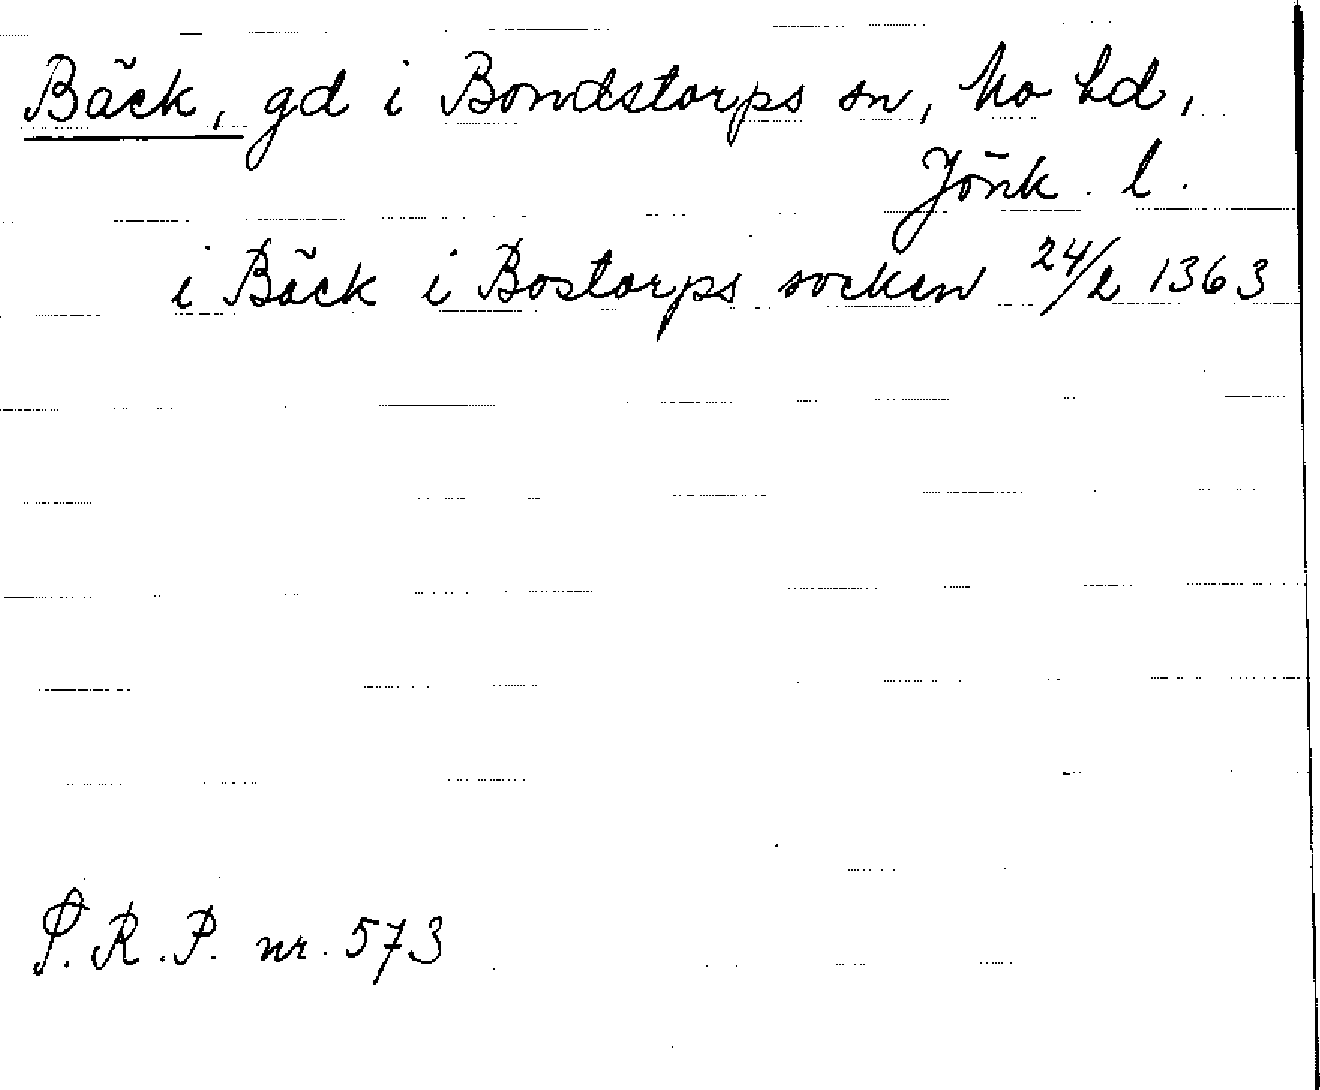 Bäck, gd i Bondstorps sn, Mo hd,
Jönk. l.
i Bäck i Bostorps socken 24/2 1363
P.R.P. nr. 573